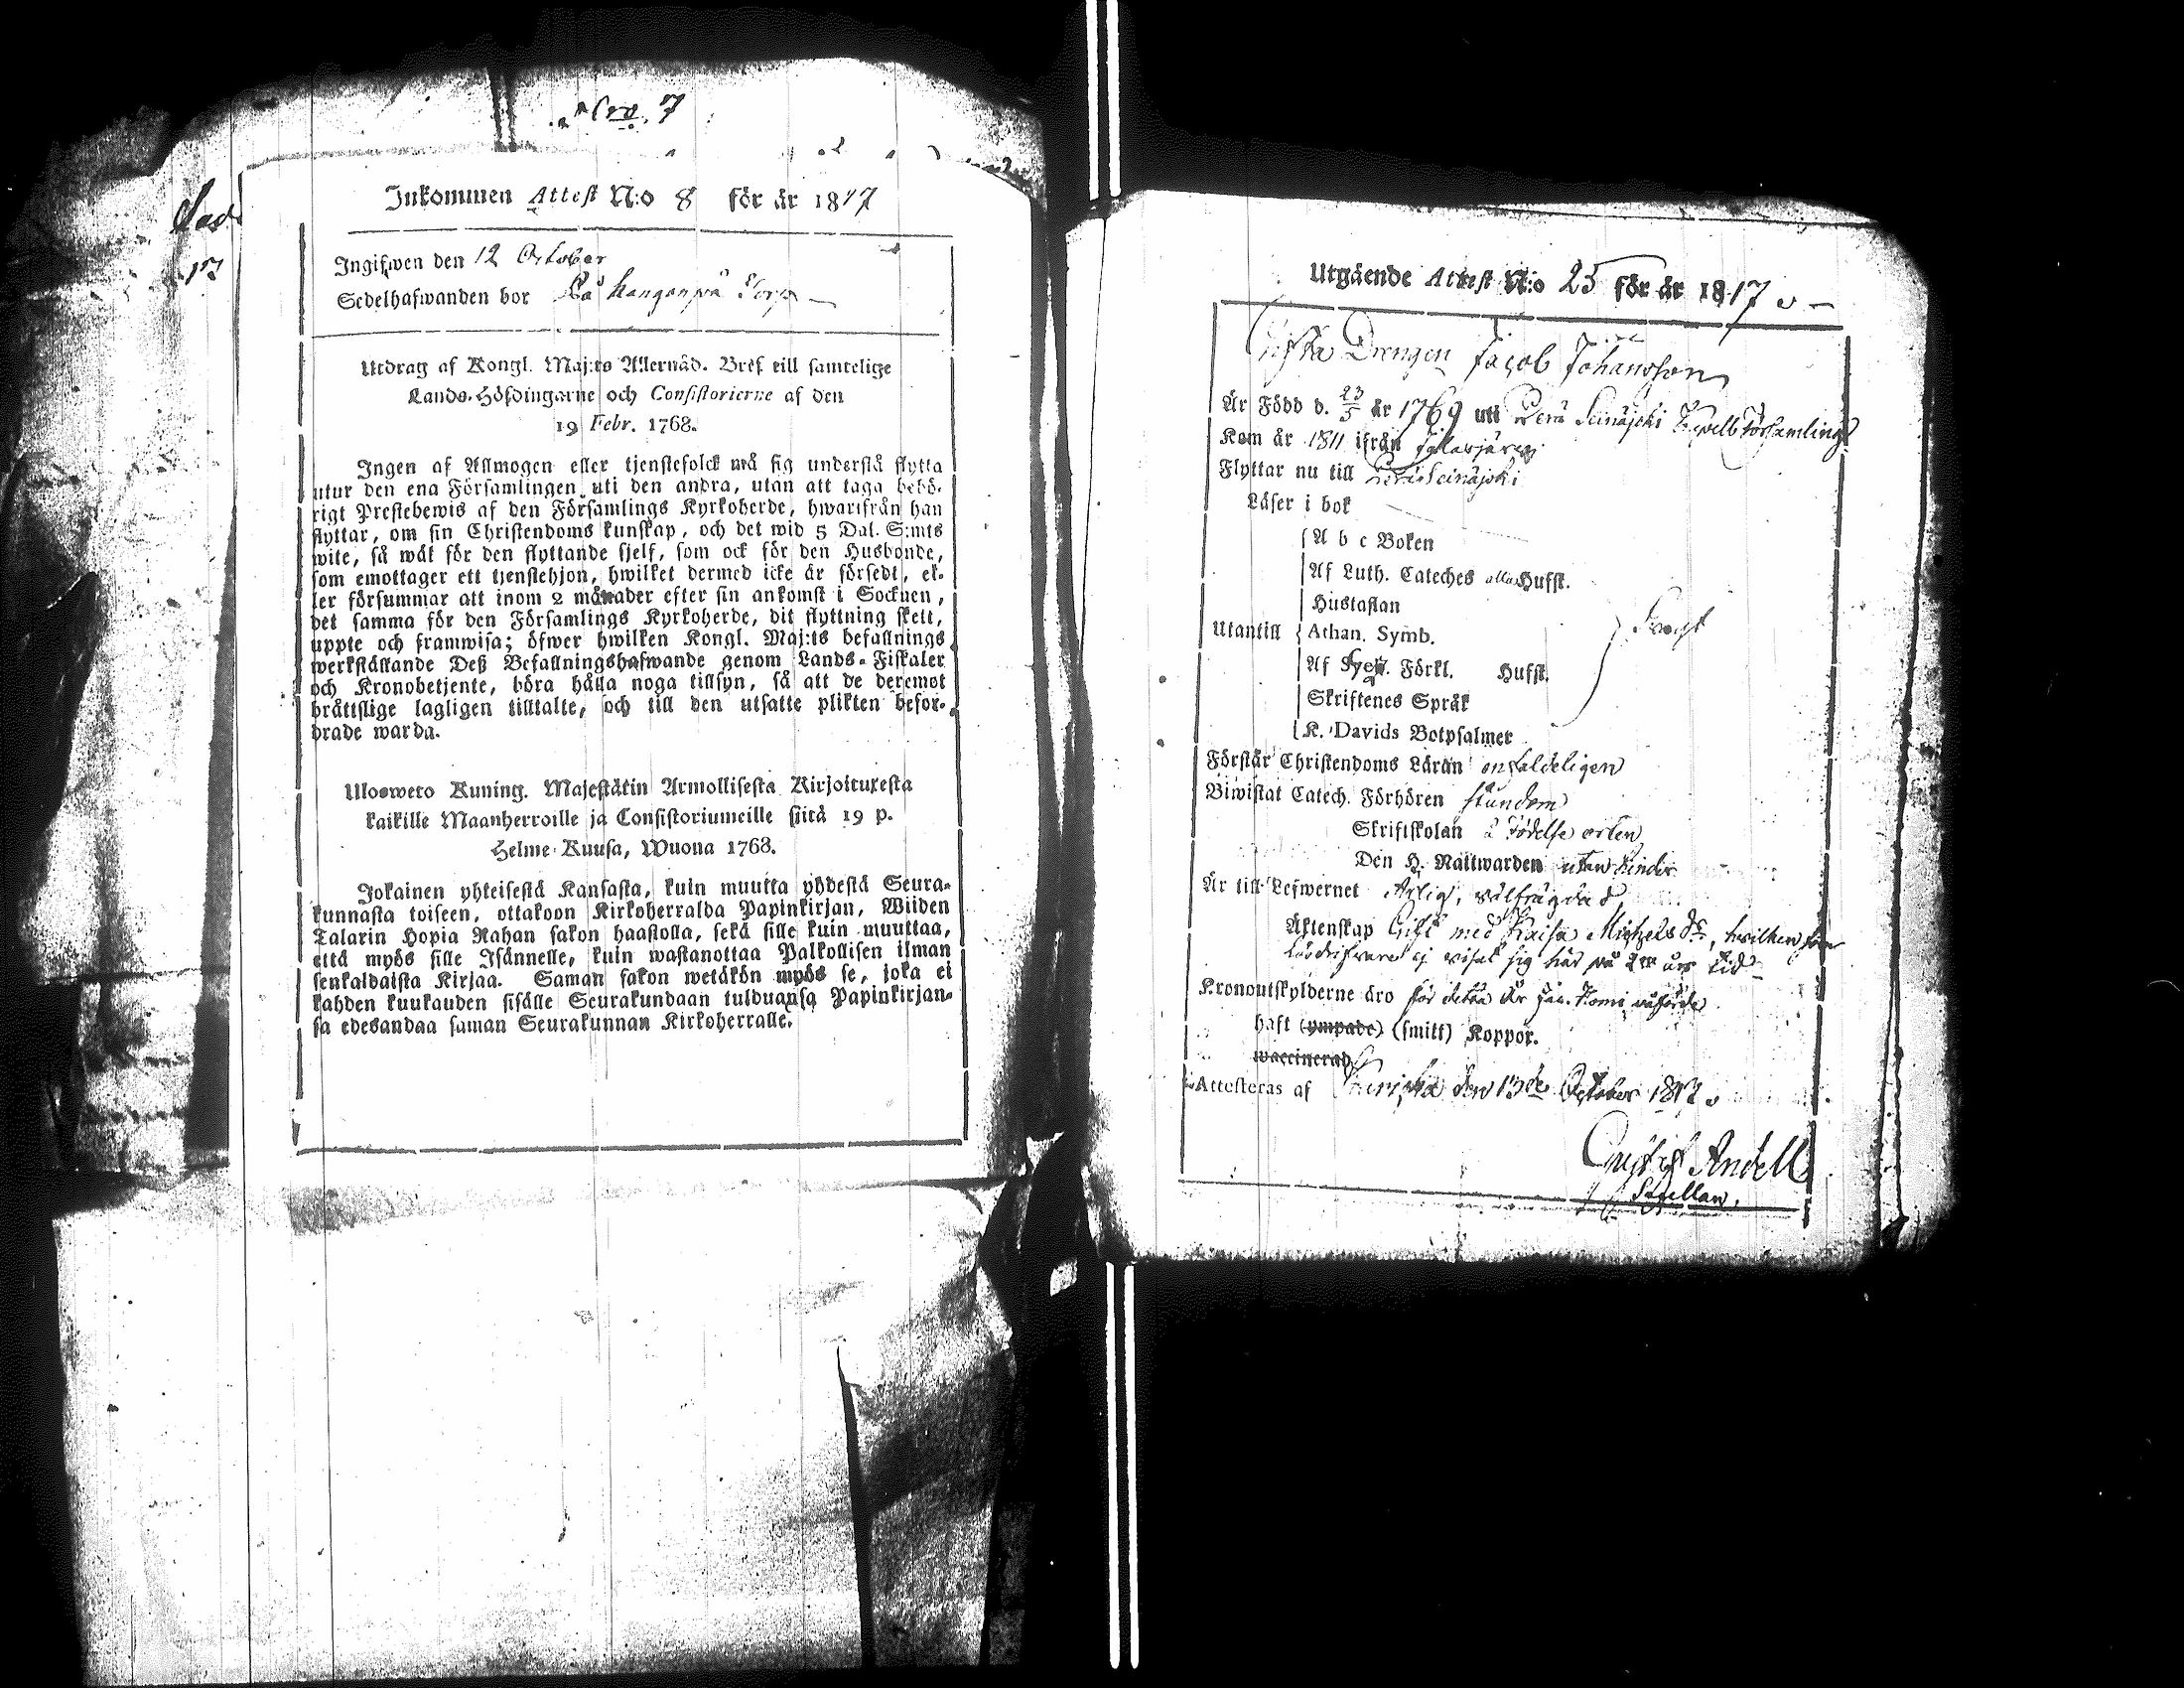 Nro 7
Inkommen Attest N:o 8 för år 1817
Ingifwen den 12 October
Sedelhafwanden bor På Torp
Utdrag af Kongl. Maj:ts Allernåd. Bref till samtelige
Lands-Höfdingarne och Consistorierne af den
19 Febr. 1768.
Ingen af Allmogen eller tjenstefolck må sig understå flytta
utur den ena Församlingen uti den andra, utan att taga behö-
rigt Prestebewis af den Församlings Kyrkoherde, hwarifrån han
flyttar, om sin Christendoms kunskap, och det wid 5 Dal. S:mts
wite, så wäl för den flyttande sjelf, som ock för den Husbonde,
som emottager ett tjenstehjon, hwilket dermed icke är försedt, el-
ler försummar att inom 2 månader efter sin ankomst i Socknen,
det samma för den Församlings Kyrkoherde, dit flyttning skett,
uppte och framwisa; öfwer hwilken Kongl. Maj:ts befallnings
werkställande Deß Befallningshafwande genom Lands-Fiskaler
och Kronobetjente, böra hålla noga tillsyn, så att de deremot
bråttslige lagligen tilltalte, och till den utsatte plikten befor-
drade warda.
Ulosweto Kuning. Majestätin Armollisesta Kirjoituxesta
kaikille Maanherroille ja Consistoriumeille siitä 19 p.
Helme-Kuusa, Wuona 1768.
Jokainen yhteisestä Kansasta, kuin muutta yhdestä Seura-
kunnasta toiseen, ottakoon Kirkoherralda Papinkirjan, Wiiden
Talarin Hopia Rahan sakon haastolla, sekä sille kuin muuttaa,
että myös sille Isännelle, kuin wastanottaa Palkollisen ilman
senkaldaista Kirjaa. Saman sakon wetäkön myös se, joka ei
kahden kuukauden sisälle Seurakundaan tulduansa Papinkirjan-
sa edesandaa saman Seurakunnan Kirkoherralle.
Utgående Attest N:o 25 för år 1817
Gifta Drengen Jacob Johansson
Är Född d. 23/5 år 1769 uti Perä Seinäjoki Capell Församling
Kom år 1811 ifrån Jalasjärvi
Flyttar nu till Perä Seinäjoki
Läser i bok
A b c Boken
Af Luth. Cateches alla Hufst.
Hustaflan
Utantill Athan. Symb.
Af Förkl. Hufst.
Skriftenes Språk
K. Davids Botpsalmer
Förstår Christendoms Läran enfaldeligen
Biwistat Catech. Förhören stundom
Skriftskolan i Födelse orten
Den H. Nattwarden utan hinder
Är till Lefwernet Ärlig, välfrägdad
Äktenskap Gift med Kaisa Michelsdr, hwilken för
ej visat sig här på års tid
Kronoutskylderne äro för detta år
haft (ympade) (smitt) Koppor.
waccinerad
Attesteras af den 13de October 1817
Gustaf Andell
Capellan.